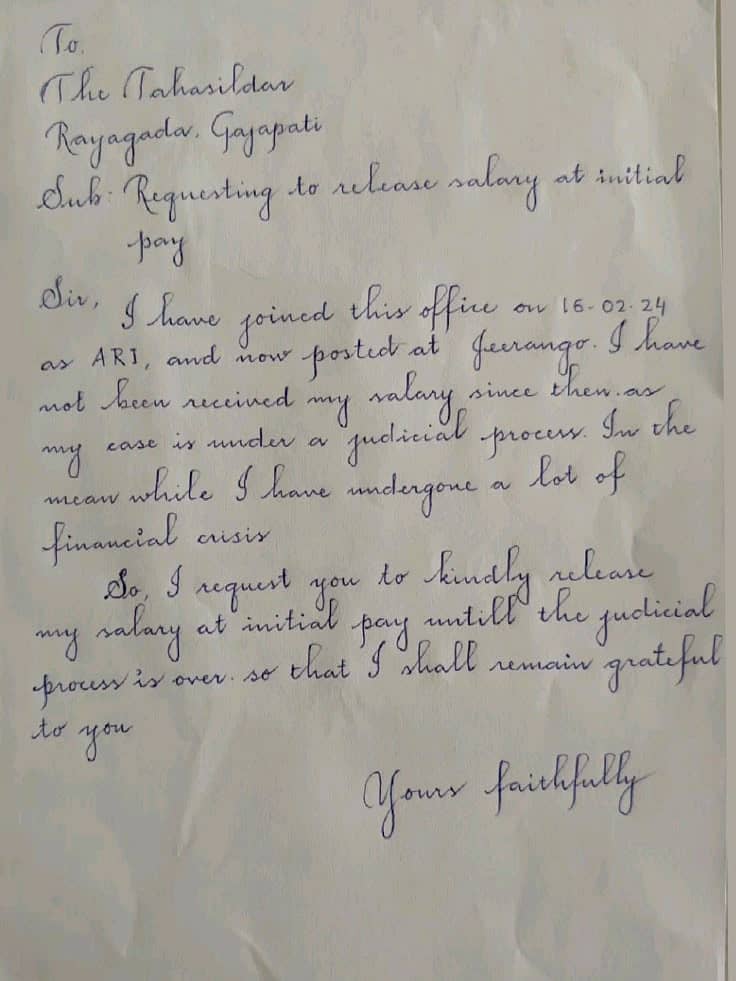 To.
The Tahasildar
Rayagada, Gajapati
Sub: Requesting to release salary at initial
pay
Sir,
I have joined this office on 16-02-24
as ARI, and now posted at Jeerango. I have
not been received my salary since then. as
my case is under a judicial process. In the
mean while I have undergone a lot of
financial crisis
So, I request you to kindly release
my salary at initial pay untill the judicial
process is over. so that I shall remain grateful
to you
Yours faithfully